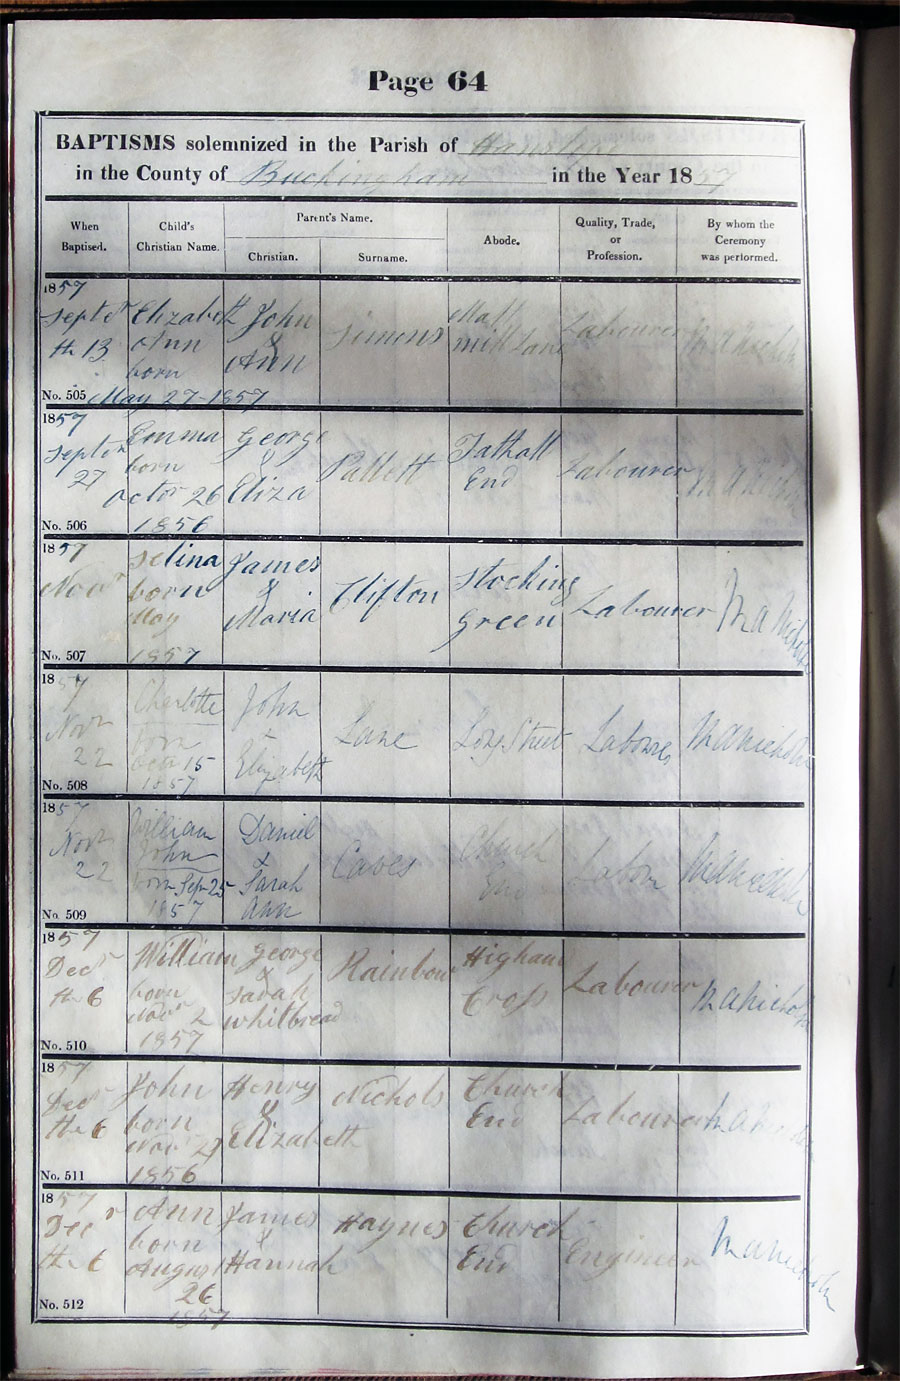 Page 64
BAPTISMS solemnized in the Parish of Hanslope
in the County of Buckingham in the Year 1857
When Baptised.
Child's Christian Name.
Parent's Name.
Christian.
Surname.
Abode.
Quality, Trade, or Profession.
By whom the Ceremony was performed.
1857
Septr
th 13
No. 505
Elizabeth
Ann
born
May 27 1857
John
&
Ann
Simons
Malt
mill Lane
Labourer
1857
Septer
27
No. 506
Emma
born
Octor 26
1856
George
&
Eliza
Pallett
Tathall
End
Labourer
1857
Novr
No. 507
Selina
born
May
1857
James
&
Maria
Clifton
Stocking
Green
Labourer
1857
Novr
22
No. 508
Charlotte
born
15
1857
John
&
Elizabeth
Lane
Long Street
Labourer
1857
Novr
22
No. 509
William
John
born Sepr 25
1857
Daniel
&
Sarah
Ann
Caves
Church
End
Labour
1857
Decr
th 6
No. 510
William
born
Novr 2
1857
George
&
Sarah
Whitbread
Rainbow
Higham
Cross
Labourer
1857
Decr
th 6
No. 511
John
born
Novr
1856
Henry
&
Elizabeth
Nichols
Church
End
Labourer
1857
Decr
th 6
No. 512
Ann
born
August
26
1857
James
&
Hannah
Haynes
Church
End
Engineer